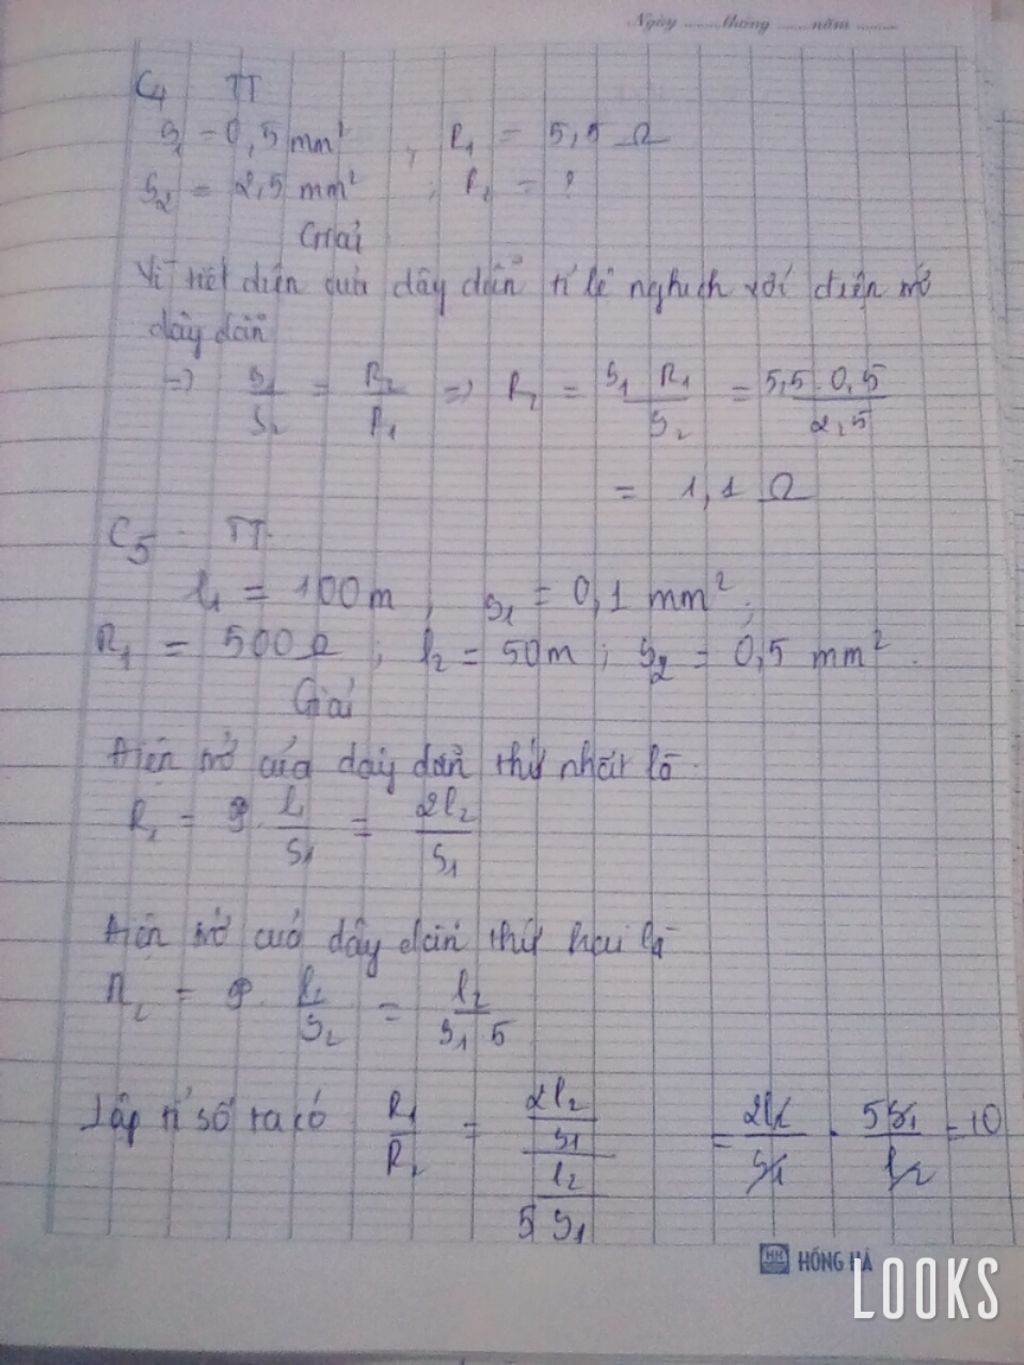 Ngày ........ tháng ...... năm ........
C4 TT
S1 = 0,5 mm² , R1 = 5,5 Ω
S2 = 2,5 mm² ; R2 = ?
Giải
Vì tiết diện của dây dẫn tỉ lệ nghịch với điện trở
dây dẫn
=> S1/S2 = R2/R1 => R2 = S1 R1/S2 = 5,5 . 0,5/2,5
= 1,1 Ω
C5 TT
l1 = 100m ; S1 = 0,1 mm² ;
R1 = 500Ω ; l2 = 50m ; S2 = 0,5 mm² .
Giải
Điện trở của dây dẫn thứ nhất là
R1 = ρ . l/S1 = 2l2/S1
Điện trở của dây dẫn thứ hai là
R2 = ρ . l2/S2 = l2/S1 5
Lập tỉ số ta có R1/R2 = 2l2/S1/l2/5 S1 = 2l2/S1 . 5S1/l2 = 10
HH HỒNG HÀ
LOOKS